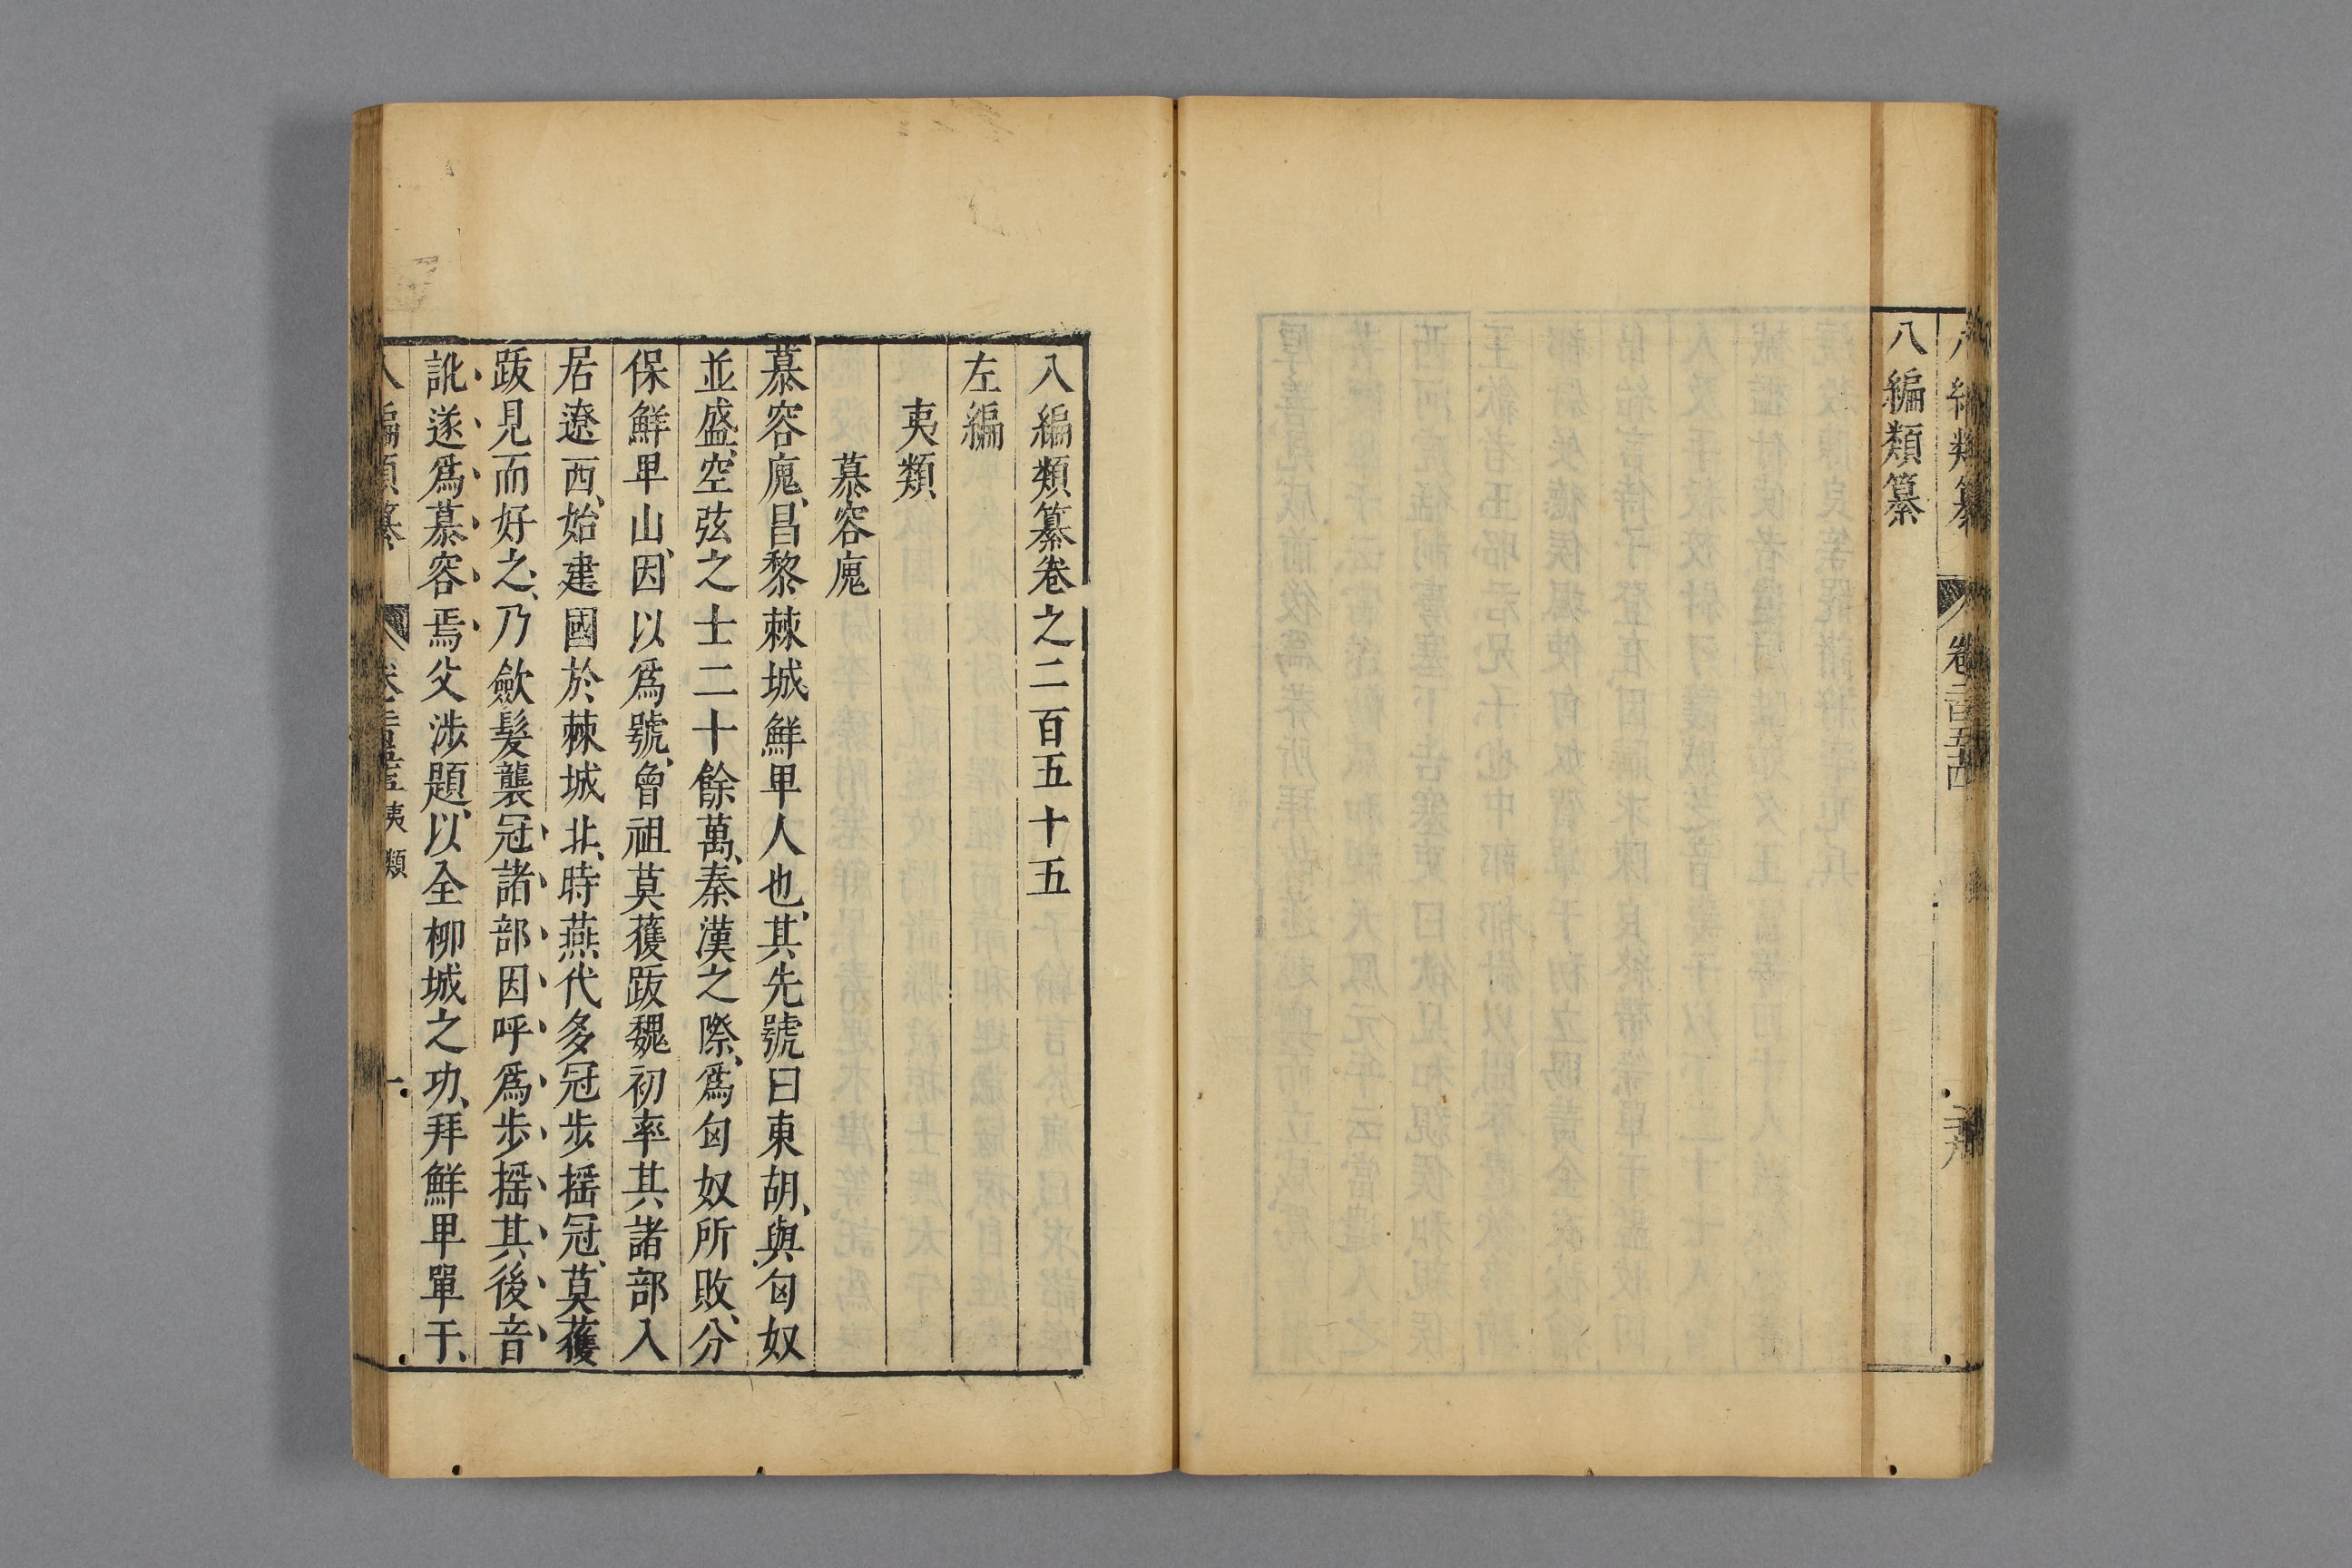 八編類纂
八編類纂卷之二百五十五
左編
夷類
慕容廆
慕容廆、昌黎棘城鮮卑人也、其先號曰東胡、與匈奴
並盛、空弦之士二十餘萬、秦漢之際、爲匈奴所敗、分
保鮮卑山、因以爲號、曾祖莫䕶跋魏初率其諸部入
居遼西、始建國於棘城北、時燕代多冠步揺冠、莫䕶
跋見而好之、乃歛髮襲冠諸部因呼爲步揺其後音
訛遂爲慕容焉父涉題、以全柳城之功、拜鮮卑單于、
夷類